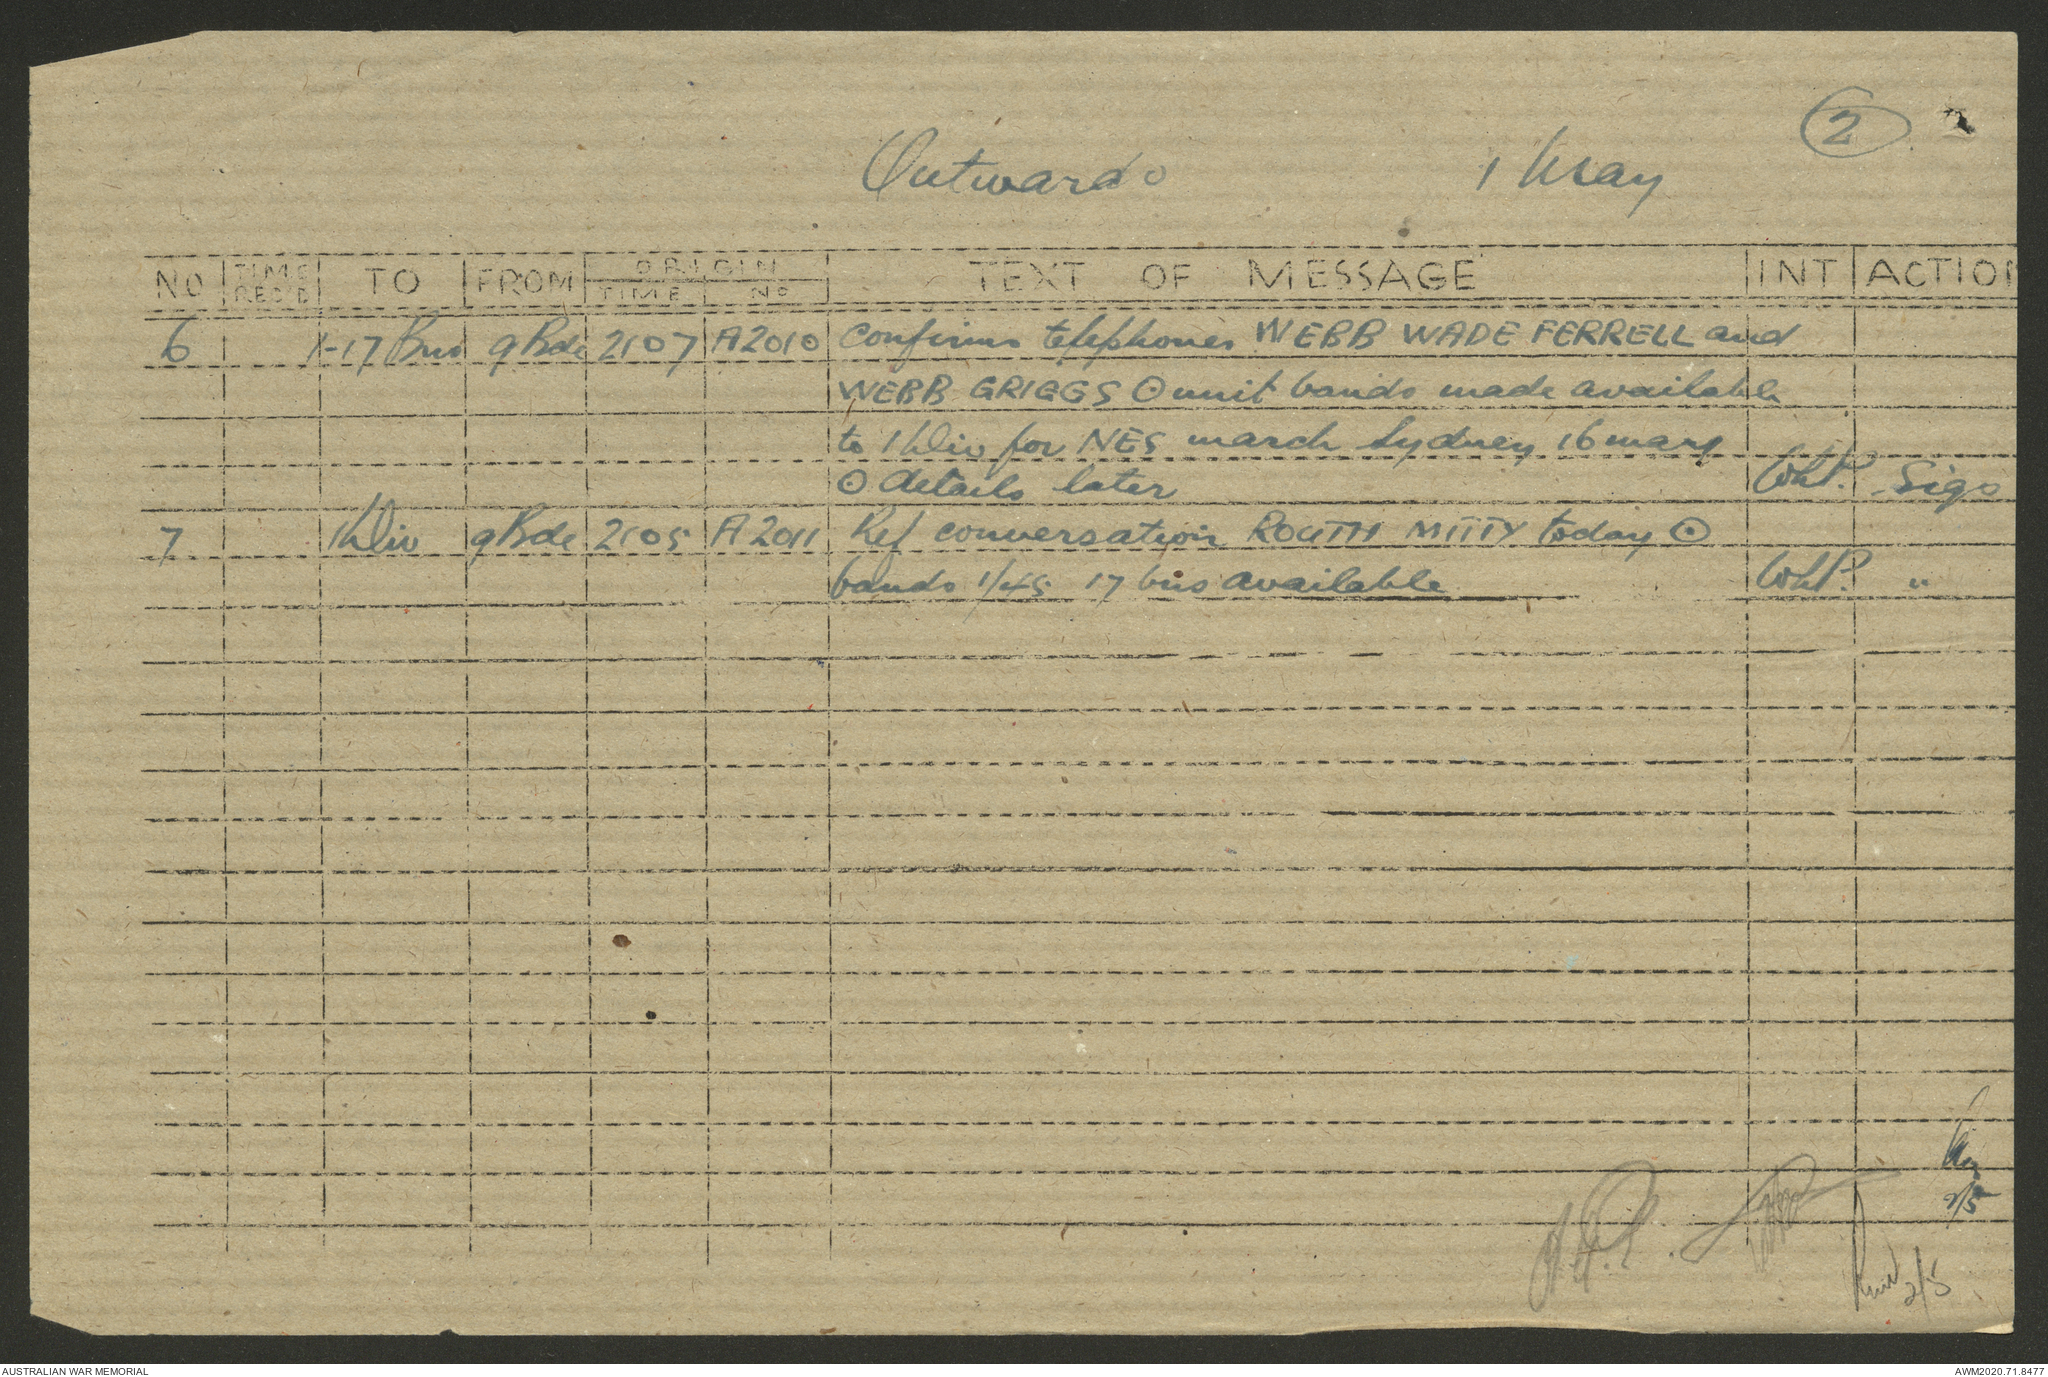 2
Outwards 1 May
NO TIME REC'D TO FROM ORIGIN TIME NO TEXT OF MESSAGE INT ACTION
6 1-17 Bns 9 Bde 2107 A2010 Confirms telephones WEBB WADE FERRELL and
WEBB GRIGGS ⊙ unit bands made available
to 1 Div for NES march Sydney 16 may
⊙ details later WhP. Sigs
7 1 Div 9 Bde 2105 A2011 Ref conversation ROUTH MITTY today ⊙
bands 1/45 17 bns available WhP. "
2/5
2/5
AUSTRALIAN WAR MEMORIAL AWM2020.71.8477